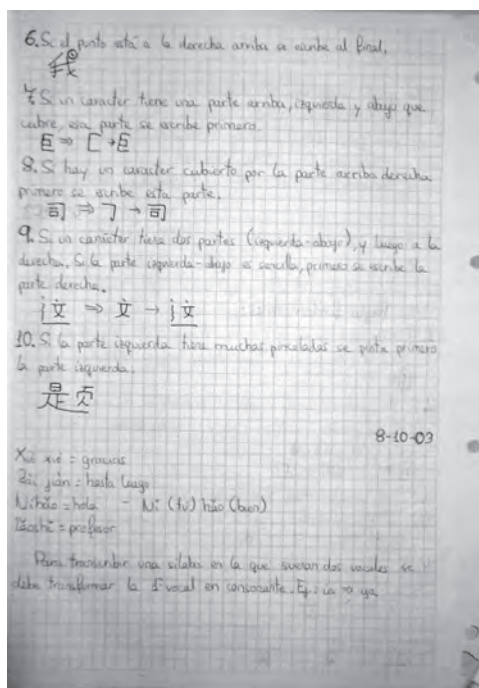 6. Si el punto está a la derecha arriba se escribe al final.
我
7. Si un caracter tiene una parte arriba, izquierda y abajo que
cubre, esa parte se escribe primero.
巨 ⇒ 匚 → 巨
8. Si hay un caracter cubierto por la parte arriba derecha
primero se escribe esta parte.
司 ⇒ ㇆ → 司
9. Si un carácter tiene dos partes (izquierda-abajo), y luego a la
derecha. Si la parte izquierda-abajo es sencilla, primero se escribe la
parte derecha.
⇒ →
10. Si la parte izquierda tiene muchas pinceladas se pinta primero
la parte izquierda.
是
8-10-03
Xiè xiè = gracias
Zài jiàn = hasta luego
Nihǎo = hola - Ni (tu) hǎo (bien)
lǎoshī = profesor
Para transcribir una sílaba en la que suenan dos vocales se
debe transformar la 1ª vocal en consonante. Ej: ia ⇒ ya